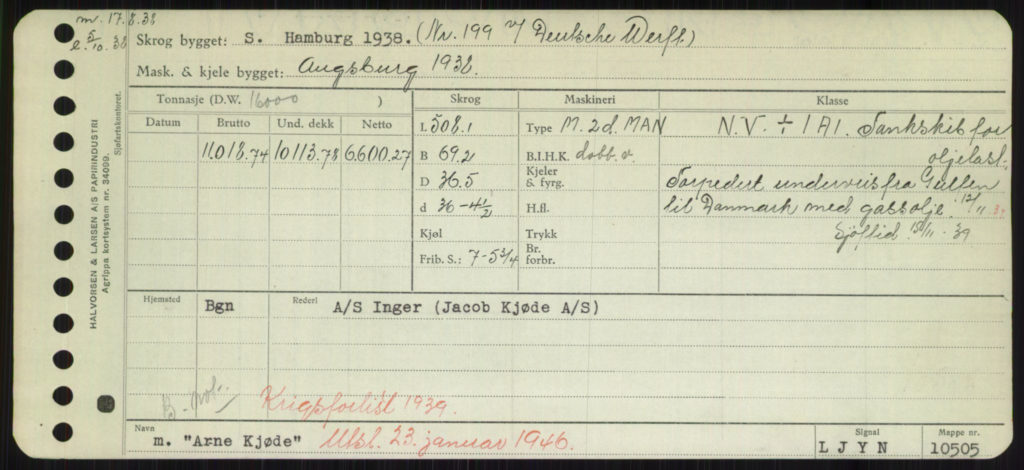 m. 17.8.38
5/10.38
Skrog bygget: S. Hamburg 1938. (Nr. 199 v/ Deutsche Werft)
Mask. & kjele bygget: Augsburg 1938.
Tonnasje (D.W. 16000 )
Skrog
Maskineri
Klasse
Datum
Brutto
Und. dekk
Netto
11018.74
10113.78
6600.27
L 508.1
B 69.2
D 36.5
d 36-4½
Kjøl
Frib. S.: 7-5¾
Type M. 2d. MAN
B.I.H.K. dobb. v.
Kjeler & fyrg.
H.fl.
Trykk
Br. forbr.
N.V. ÷ 1A1. Tankskib for
oljelast.
Torpedert underveis fra Gulfen
til Danmark med gassolje. 12/11.39
Sjøftid 15/11-39
Hjemsted
Bgn
Rederi
A/S Inger (Jacob Kjøde A/S)
Krigsforlist 1939.
Navn
m. "Arne Kjøde"
Utsl. 23. januar 1946.
Signal
LJYN
Mappe nr.
10505
HALVORSEN & LARSEN A/S PAPIRINDUSTRI
Agrippa kortsystem nr. 34099.
Sjøfartskontoret.